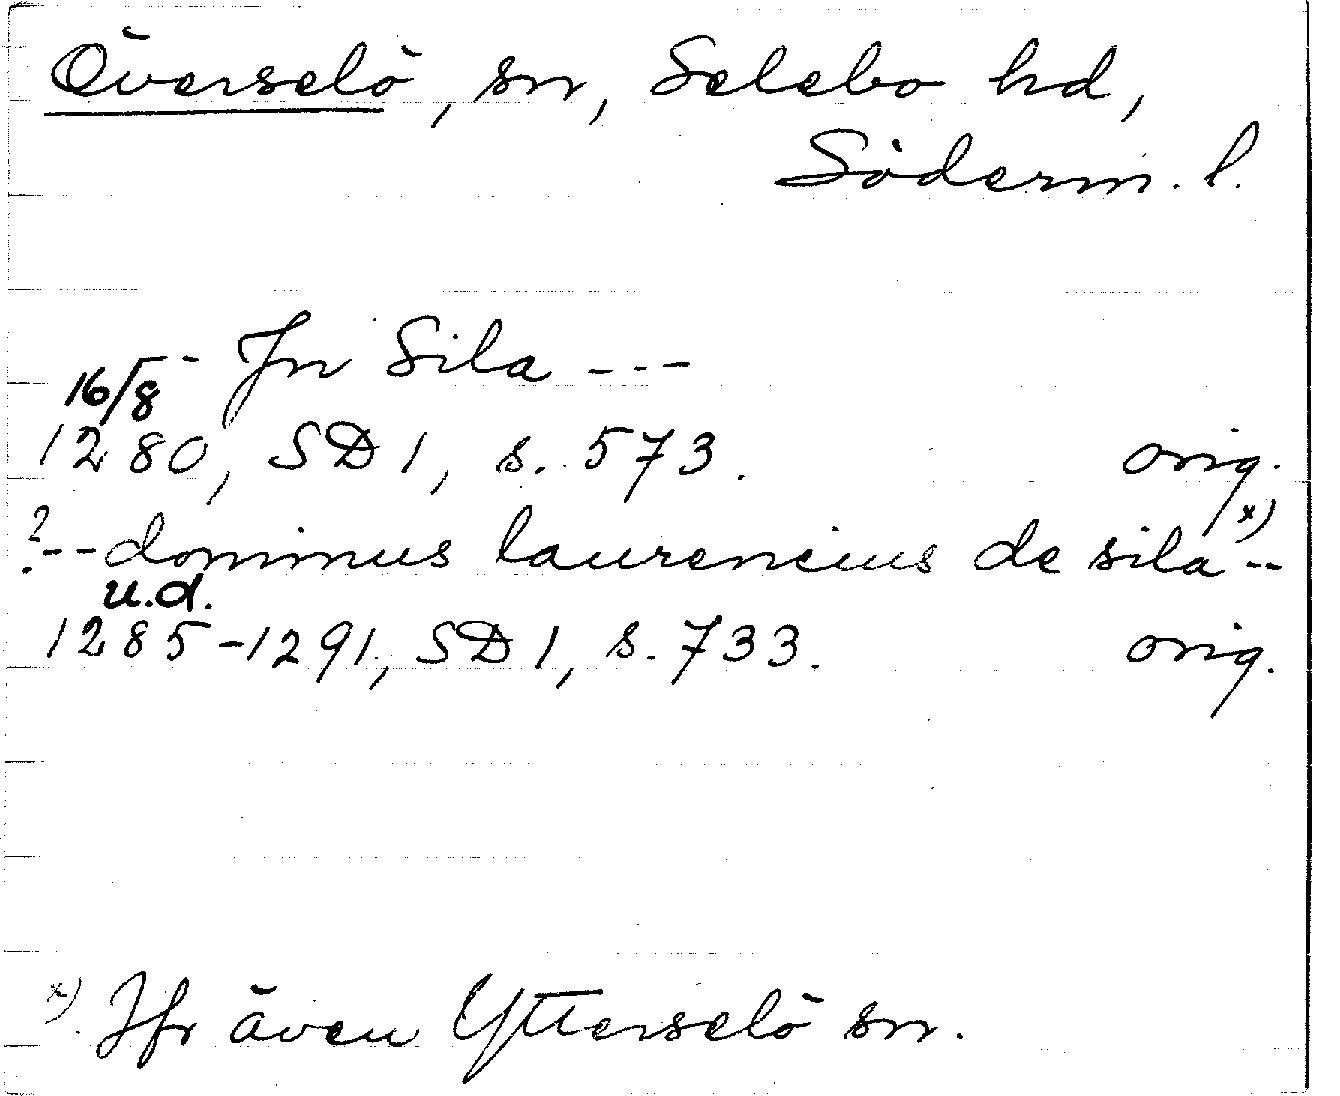 Överselö, sn, Selebo hd,
Söderm. l.
In Sila ---
16/8
1280, SD 1, s. 573. orig.
?--dominus laurencius de sila x) --
u.d.
1285-1291, SD 1, s. 733. orig.
x) Jfr även Ytterselö sn.